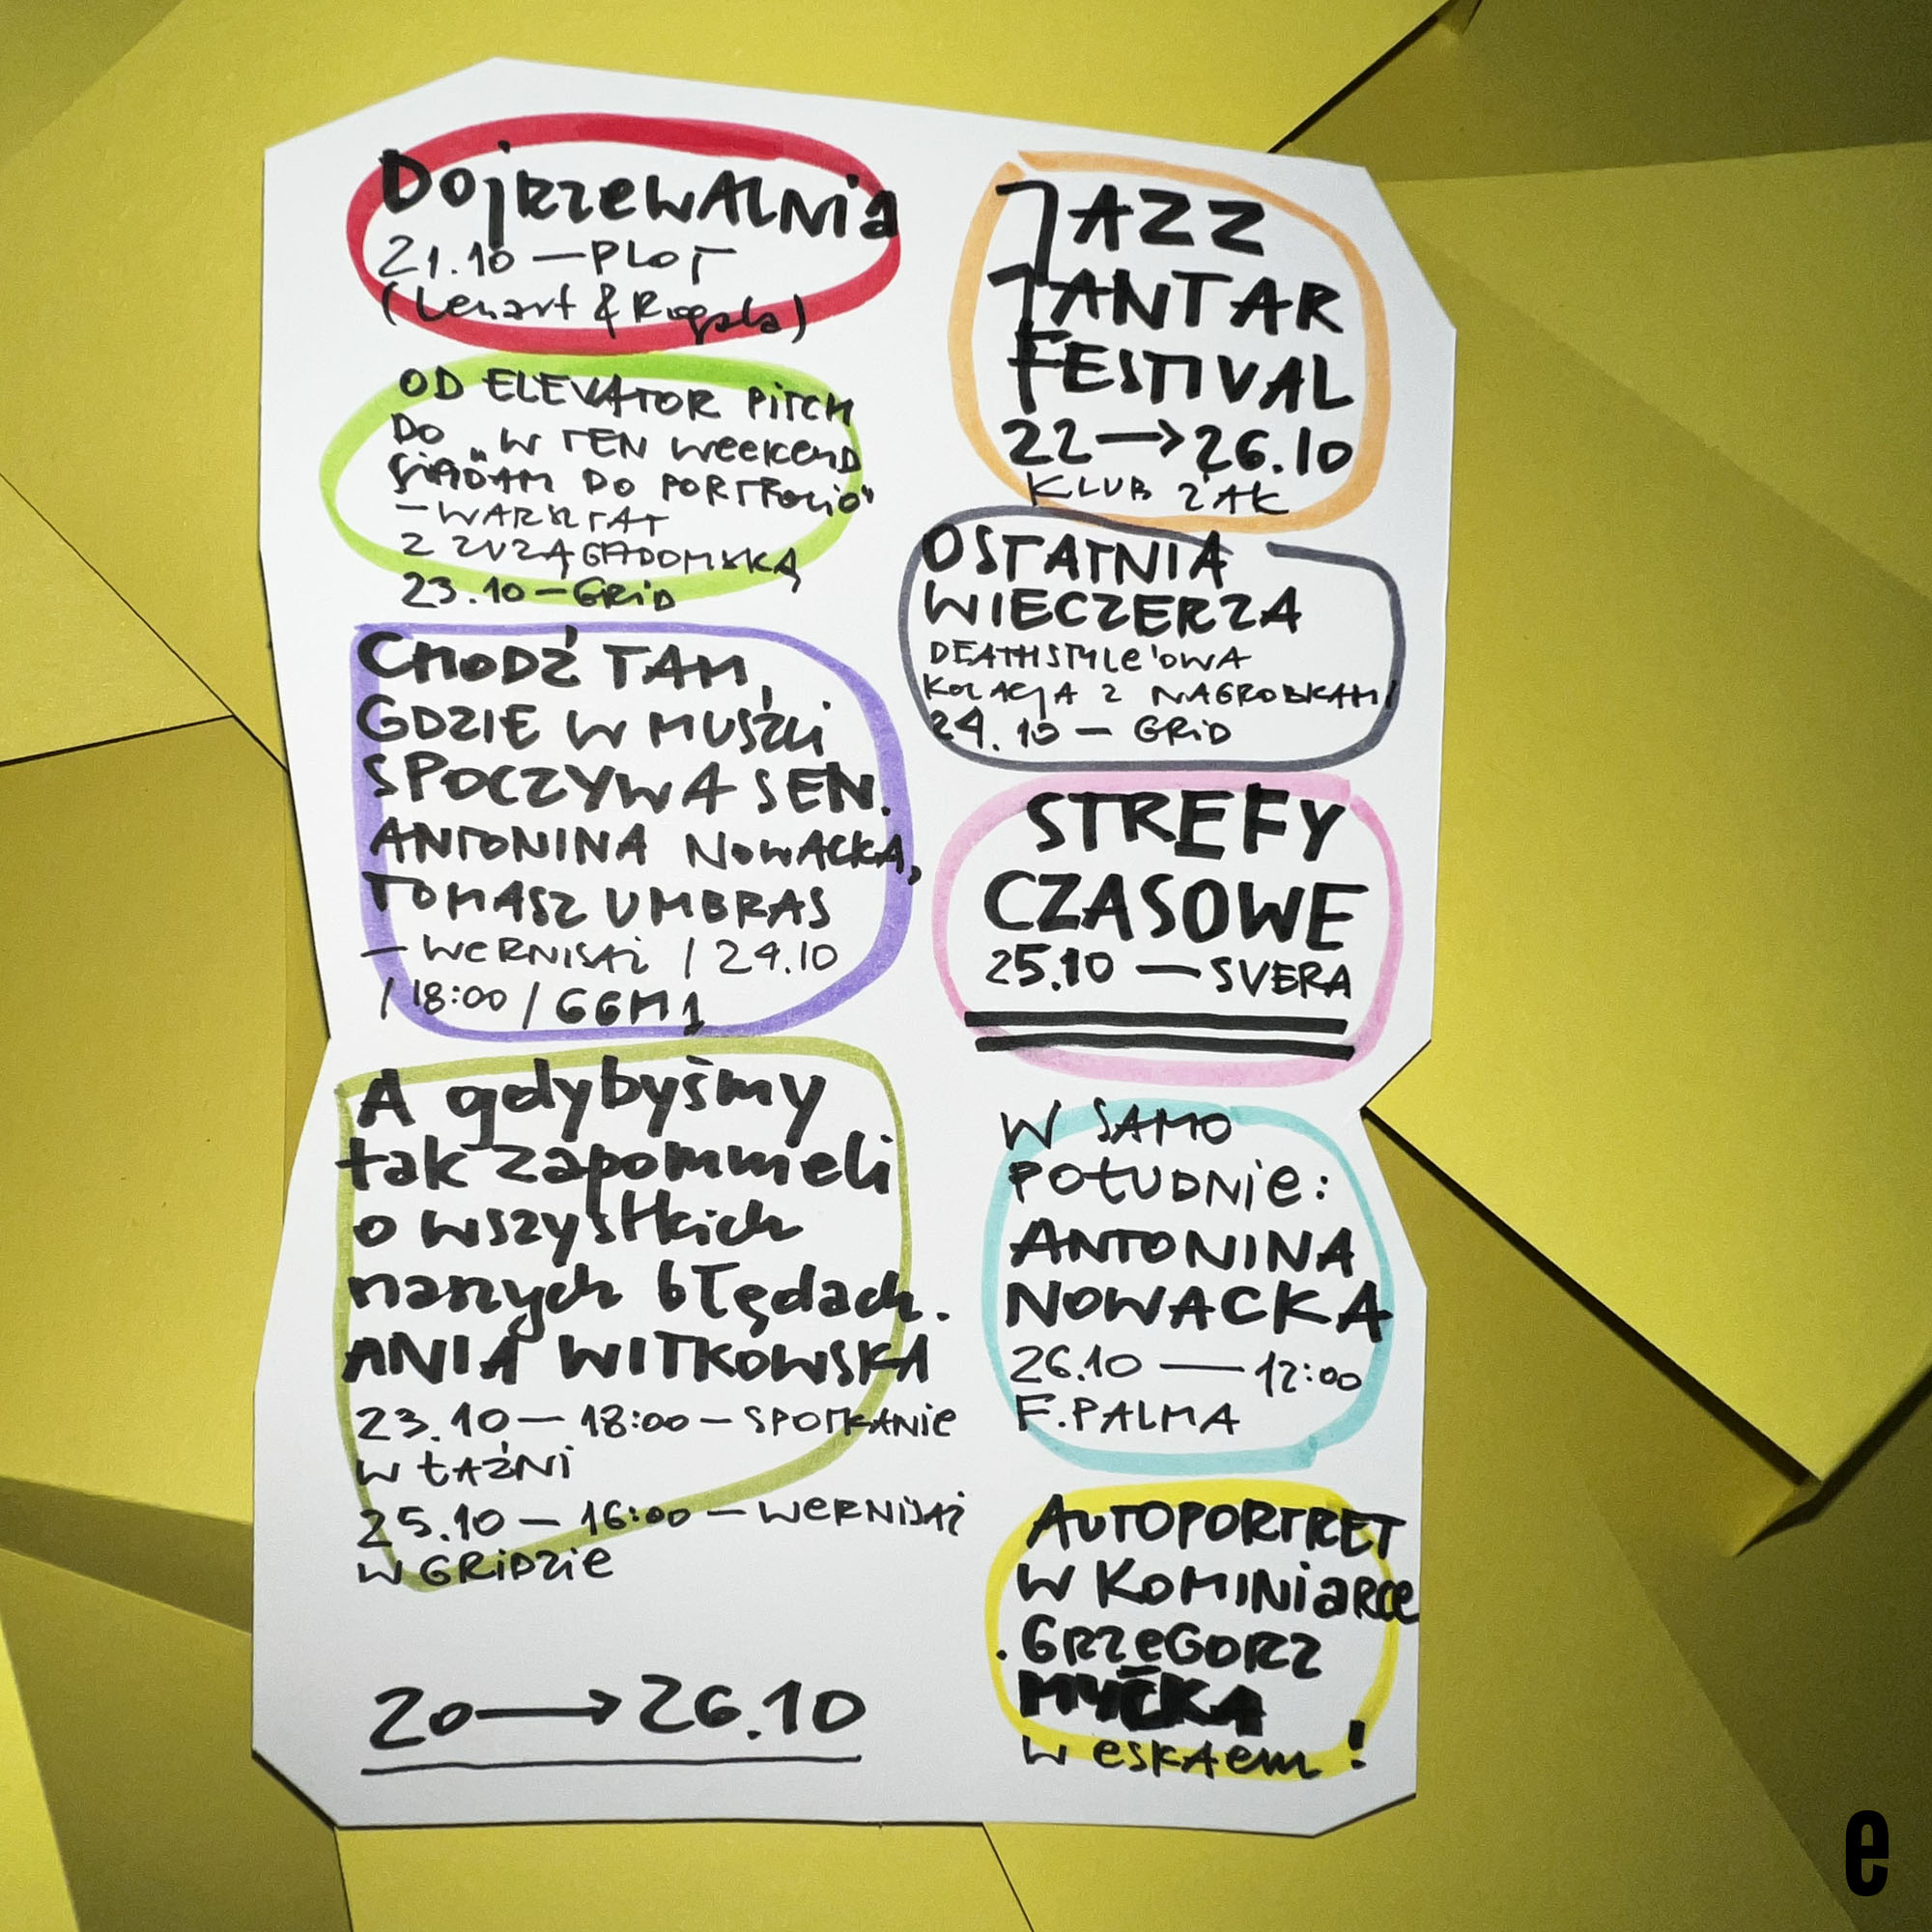 Dojrzewalnia
21.10 — PLOT
(Lenart & Rogala)
OD ELEVATOR PITCH
DO „W TEN WEEKEND
SIADAM DO PORTFOLIO"
— WARSZTAT
Z ZUZĄ GADOMSKĄ
23.10 — GRID
CHODŹ TAM,
GDZIE W MUSZLI
SPOCZYWA SEN.
ANTONINA NOWACKA,
TOMASZ UMBRAS
— WERNISAŻ / 24.10
/ 18:00 / GGM1
A gdybyśmy
tak zapomnieli
o wszystkich
naszych błędach.
ANIA WITKOWSKA
23.10 — 18:00 — SPOTKANIE
W ŁAŹNI
25.10 — 16:00 — WERNISAŻ
W GRIDZIE
20 → 26.10
JAZZ
JANTAR
FESTIVAL
22 → 26.10
KLUB ŻAK
OSTATNIA
WIECZERZA
DEATHSTYLE'OWA
KOLACJA Z NAGROBKAMI
24.10 — GRID
STREFY
CZASOWE
25.10 — SVERA
W SAMO
POŁUDNIE:
ANTONINA
NOWACKA
26.10 — 12:00
F.PALMA
AUTOPORTRET
W KOMINIARCE
. GRZEGORZ
MYĆKA
W ESKAEM!
e